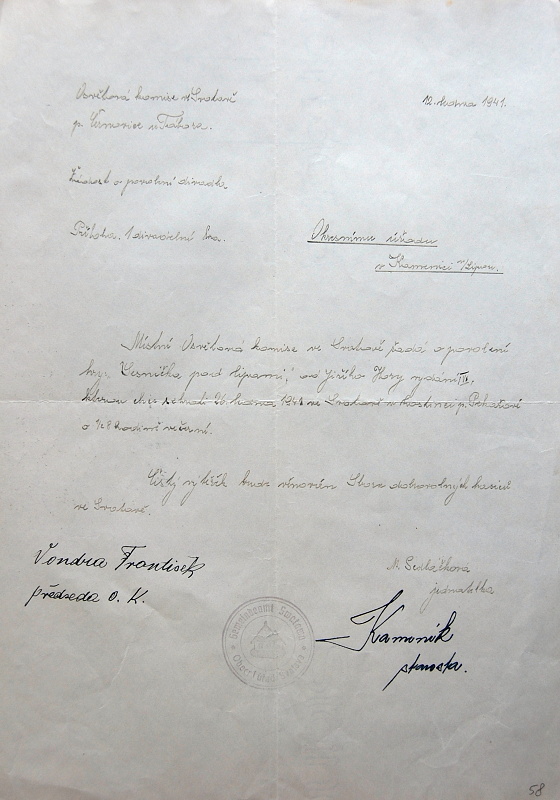 Osvětová komise ve Svatavě
p. Černovice u Tábora.
12. března 1941.
Žádost o povolení divadla.
Příloha. 1 divadelní hra.
Okresnímu úřadu
v Kamenici n/Lipou.
Místní Osvětová komise ve Svatavě žádá o povolení
hry: Vesnička pod lipami, od Jiřího Hory vydání III.
kterou chce sehrati 26. března 1941 ve Svatavě v hostinci p. Pekařově
o 1/28 hodině večerní.
Čistý výtěžek bude věnován Sboru dobrovolných hasičů
ve Svatavě.
Vondra František
předseda O. K.
M. Sedláčková
jednatelka
Kameník
starosta.
58